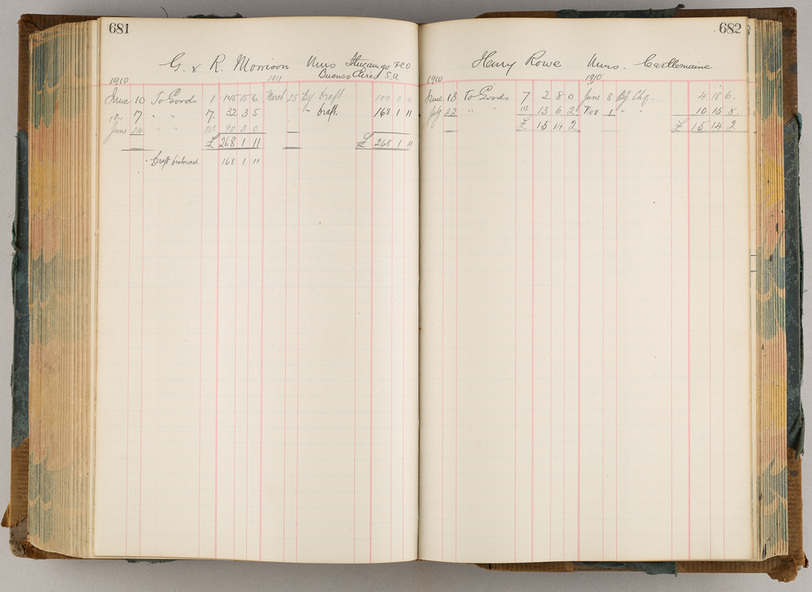 681
G. & R. Morrison Nurs
Buenos S.A
1910 1911
June 10 To Goods 1 145 15 6 March 25 By Draft 100 0 0
July 7 " " 7 32 3 5 " Draft 168 1 11
June 24 " " 90 3 0
£ 268 1 11 £ 268 1 11
168 1 11
682
Henry Rowe Nurs. Castlemaine
1910 1910
June 13 To Goods 7 2 8 0 June 8 By Chq. 4 18 6
July 22 " " 13 6 2 Nov 1 " " 10 15 8
£ 15 14 2 £ 15 14 2